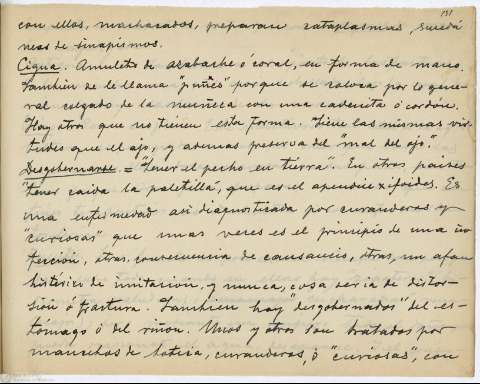 131
con ellos, machacados, preparan cataplasmas, sucedá
neas de sinapismos.
Cigua. Amuleto de azabache ó coral, en forma de mano.
Tambien de le llama "puñis" porque se coloca por lo gene-
ral colgado de la muñeca con una cadenita ó cordón.
Hay otros que no tienen esta forma. Tiene las mismas vir-
tudes que el ajo, y ademas preserva del "mal del ojo".
Desgobernarse = "tener el pecho en tierra". En otros paises
"tener caida la paletilla", que es el apendice xifoides. Es
una enfermedad asi diagnosticada por curanderas y
"curiosas" que unas veces es el principio de una in
feccion, otras, consecuencia de cansancio, otras, un afan
histérico de imitacion, y nunca, cosa seria de distor-
sión ó fractura. Tambien hay "desgobernados" del es-
tómago ó del riñon. Unos y otros son tratados por
manchos de botica, curanderas, ó "curiosas", con